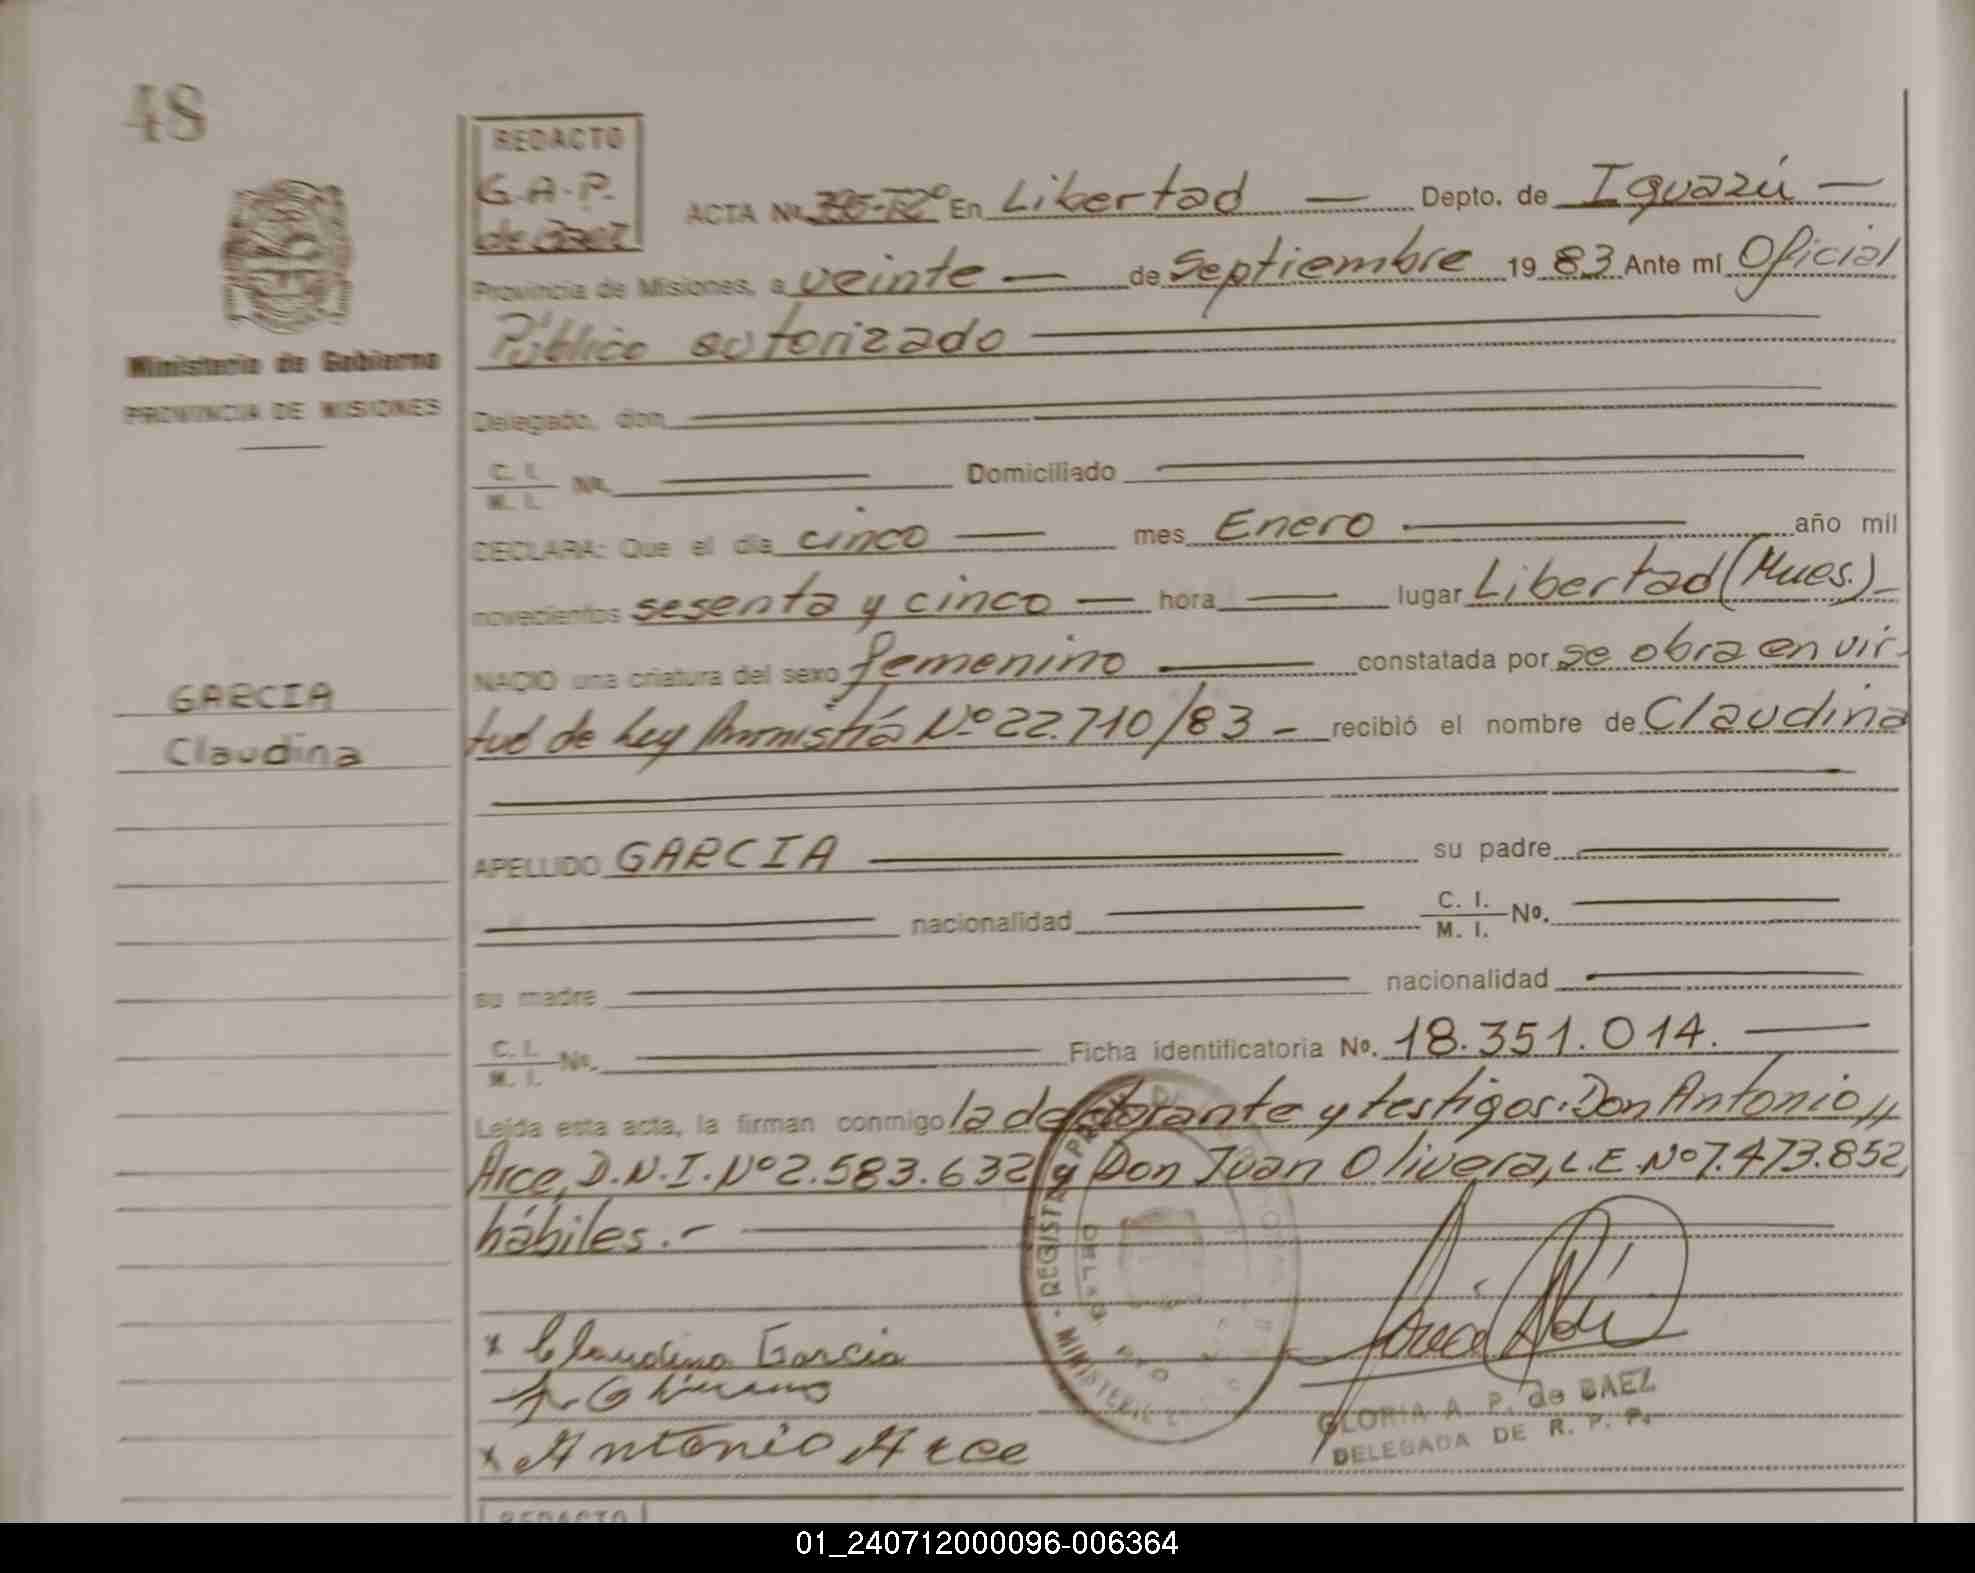 48
REDACTO
G.A.P.
de Baez
ACTA Nº 395-Tº2º En Libertad — Depto. de Iguazú —
Provincia de Misiones, a veinte — de Septiembre 19 83 Ante mí Oficial
Público autorizado
Ministerio de Gobierno
PROVINCIA DE MISIONES
Delegado, don
C. I.
M. I. Nº. Domiciliado
DECLARA: Que el día cinco — mes Enero — año mil
novecientos sesenta y cinco — hora — lugar Libertad (Mnes.) —
NACIO una criatura del sexo femenino — constatada por se obra en vir-
GARCIA
tud de Ley Amnistía Nº 22.710/83 - recibió el nombre de Claudina
Claudina
APELLIDO GARCIA — su padre
nacionalidad C. I.
M. I. Nº.
su madre nacionalidad
C. I.
M. I. Nº. Ficha identificatoria Nº. 18.351.014. —
Leída esta acta, la firman conmigo la declarante y testigos: Don Antonio,,
Arce, D.N.I. Nº 2.583.632 y Don Juan Olivera, L.E. Nº 7.473.852,
hábiles.-
x Claudina Garcia
x Antonio Arce
GLORIA A. P. de BAEZ
DELEGADA DE R. P. P.
REDACTO
01_240712000096-006364